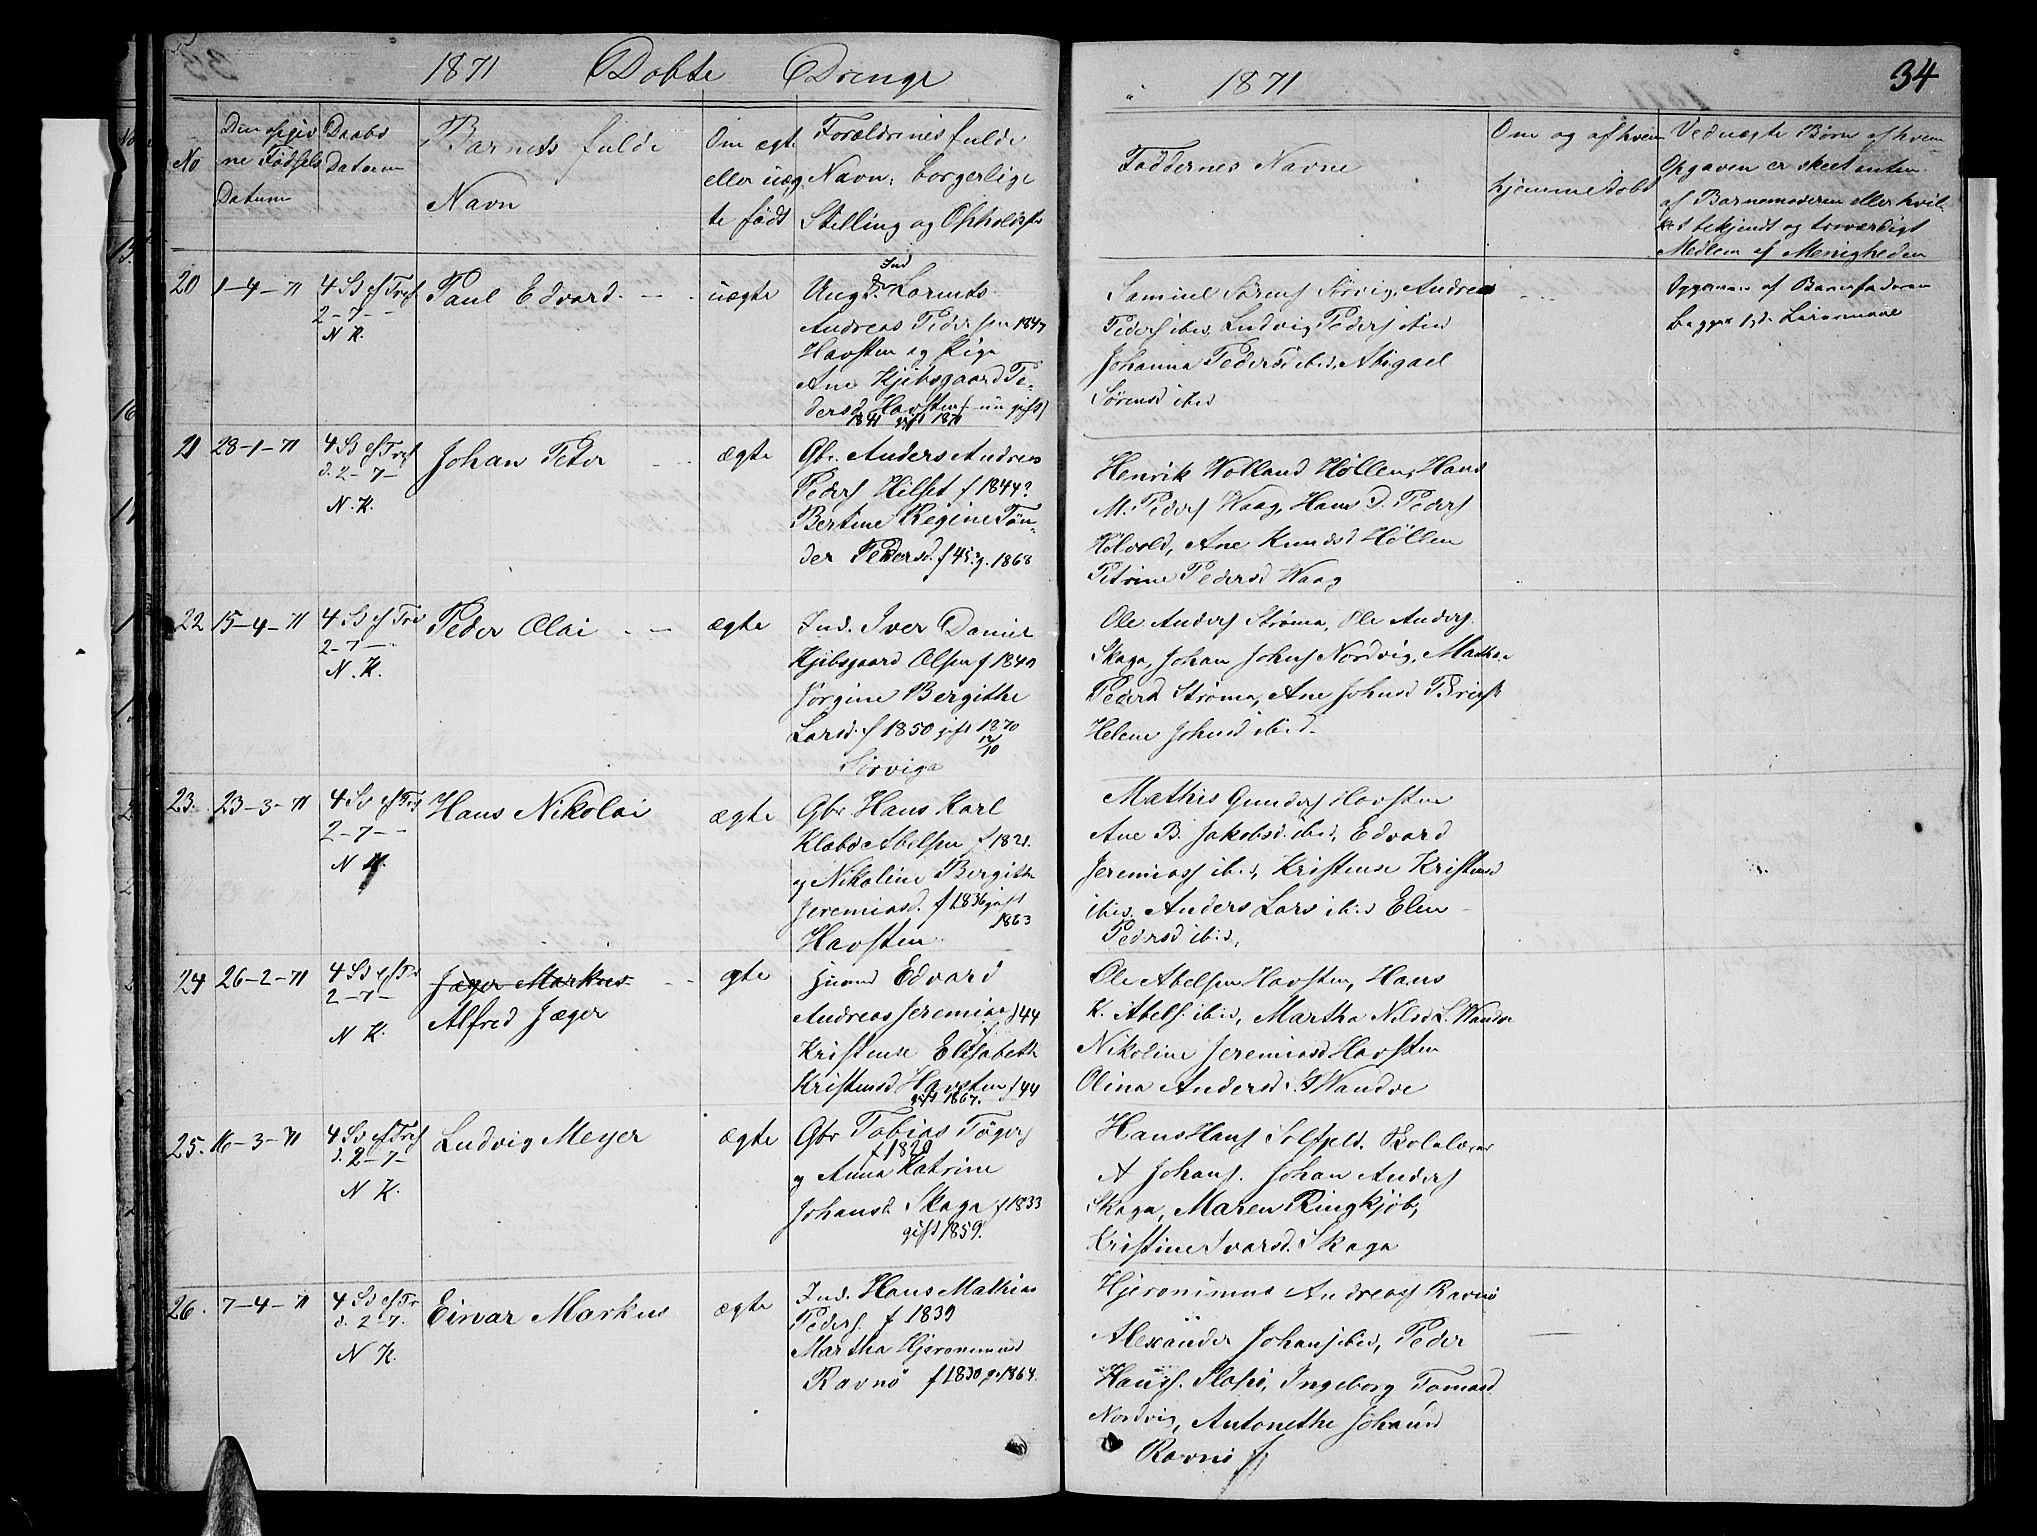 1871 Døbte Drenge
1871
34
No
Den opgiv
ne Fødsels
Datum
Daabs
Datum
Barnets fulde
Navn
Om ægte
eller uæg
te født
Forældrenes fulde
Navn, borgerlige
Stilling og Opholdsst
Faddernes Navne
Om og af hvem
hjemmedøbt
Ved uægte Børn af hvem
Opgaven er skeet enten
af Barnemoderen eller hvil-
ket bekjendt og troværdigt
Medlem af Menigheden
20
1-4-71
4 S ef Tref
2-7-
N K.
Paul Edvard
uægte
Ungk. Lornts
Andreas Pedersen 1847
Havsten og Pige
Ane Kjibsgaard Pe-
dersd Havsten
1841 gift 1871
Samuel Sørens Sørvig, Andreas
Peders ibid, Ludvig Peders
Johanna Pedersd ibid, Abigael
Sørensd ibid
Opgaven af Barnefaderen
21
28-1-71
4 S ef Tref
d. 2-7-
N. K.
Johan Peter
ægte
Gbr. Anders Andreas
Peders Hilset f 1844?
Bertine Regine Tøn-
der Pedersd. f 45 g. 1868
Henrik Wolland Høllen, Hans
M. Peders Waag, Hans P. Peders
Hølvold, Ane Knudsd Høllen
Petrine Pedersd Waag
22
15-4-71
4 S ef Tre
2-7-
N. K.
Peder Olai
ægte
Ind. Iver Daniel
Kjibsgaard Olsen f 1840
Jørgine Bergithe
Larsd. f 1850 gift 1870
12/10
Sørviga
Ole Anders Strøma, Ole Anders.
Skaga, Johan Johns Nordvig, Martha
Pedersd Strøma, Ane Johnsd
Helene Johnsd ibid.
23.
23-3-71
4 S ef Tre
2-7-
N K.
Hans Nikolai
ægte
Gbr Hans Karl
Klabo Abelsen f 1821.
og Nikoline Bergithe
Jeremiasd. f 1836 gift
1863
Havsten
Mathis Gunders Havsten
Ane B. Jakobsd. ibid, Edvard
Jeremiass ibid, Kristense Kristensd
ibid, Anders Lars ibid Elen
Pedrsd ibid,
24
26-2-71
4 S ef Tr
2-7-
N K.
Jæger Markus
Alfred Jæger
ægte
Edvard
Andreas Jeremias f 44
Kristense Elisabeth
Kristensd Havsten f 44
gift 1867.
Ole Abelsen Havsten, Hans
K. Abels. ibid, Martha Nilsd L. Wandve
Nikoline Jeremiasd Havsten
Olina Andersd. Wandve
25.
16-3-71
4 S ef Tref
d. 2-7-
N K.
Ludvig Meyer
ægte
Gbr Tobias Tøgers
f 1820
og Anna Katrine
Johansd Skaga f 1833
gift 1859.
Hans Hans Solfjeld. Skolelærer
A Johans. Johan Anders
Skaga, Maren Ringkjøb,
Kristine Ivarsd. Skaga
26.
7-4-71
4 S ef Tr
d. 2 7.
N K.
Einar Markus
ægte
Ind. Hans Mathias
Peders. f 1839
Martha Hjeronimusd
Ravnø f 1830 g. 1864.
Hjeronimus Andreass Ravnø
Alexander Johans ibid, Peder
Hanss. Slapø, Ingeborg Tomasd
Nordvig, Antonethe Johansd
Ravnø